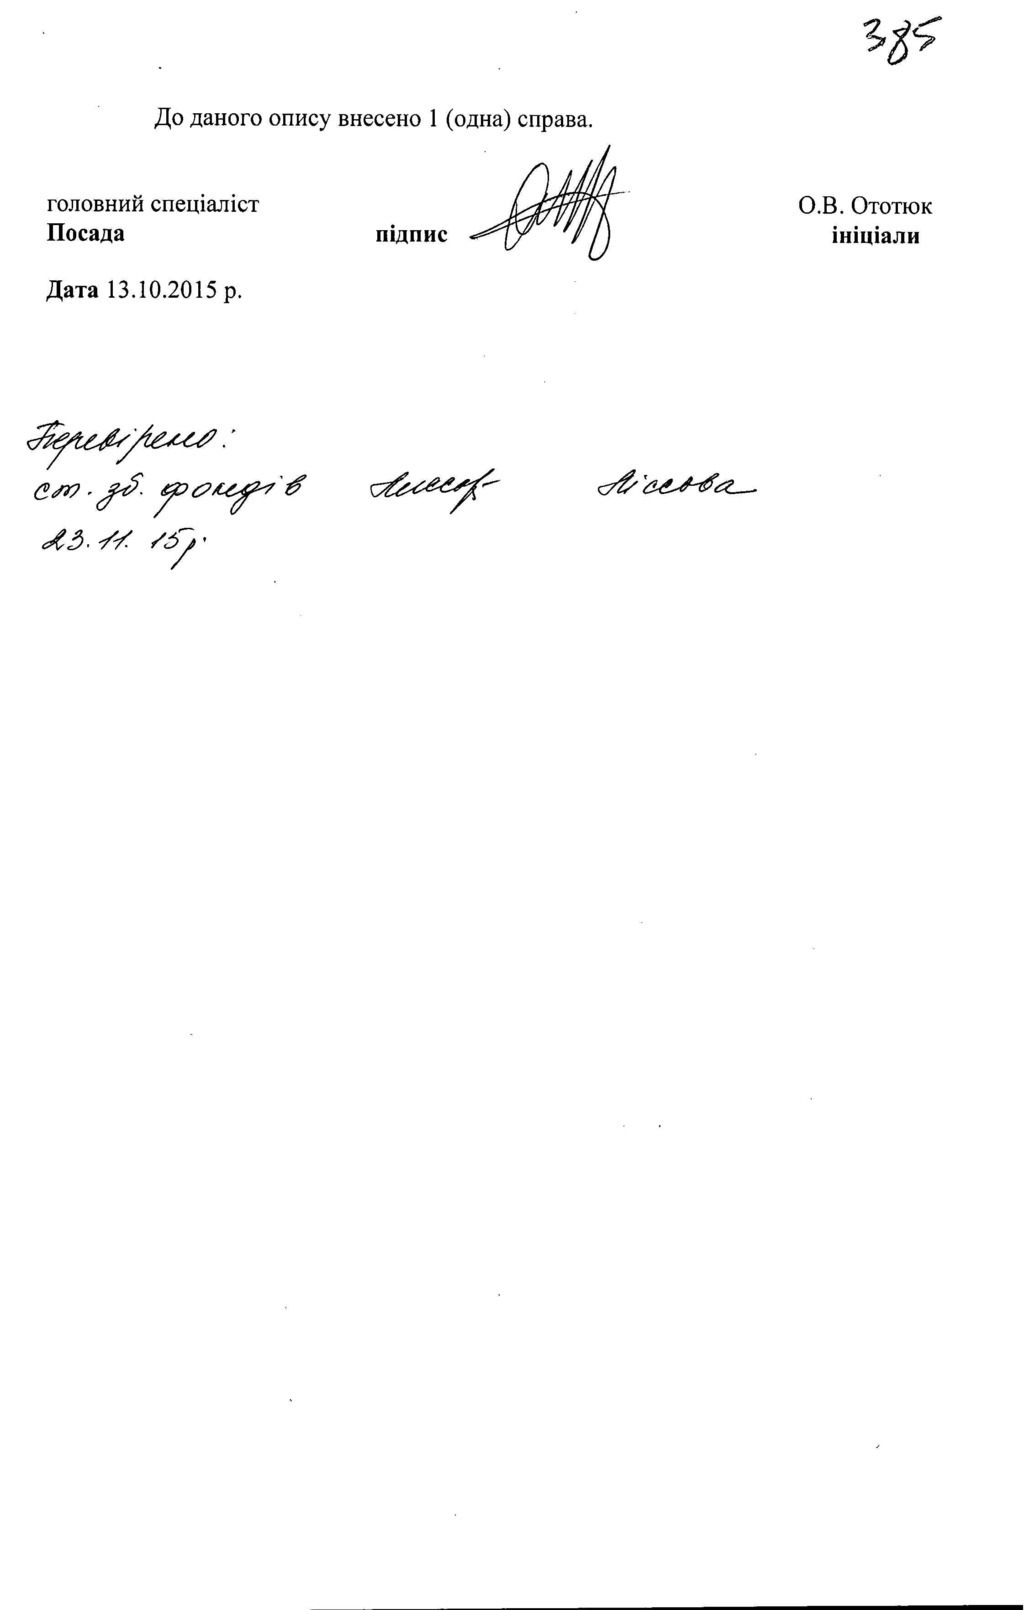 385
До даного опису внесено 1 (одна) справа.
головний спеціаліст О.В. Ототюк
Посада підпис ініціали
Дата 13.10.2015 р.
Перевірено:
ст. зб. фондів Ліссова
23.11.15р.